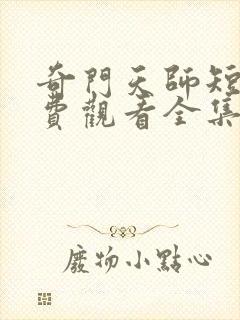 奇門天師短
費觀看全集
廢物小點心